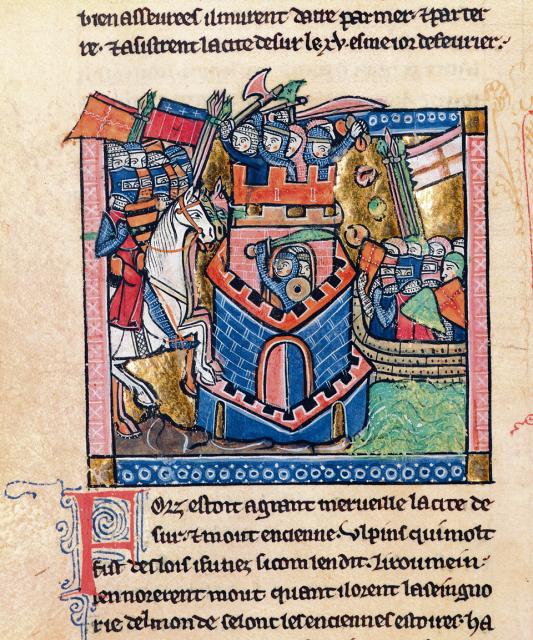 bien asseurees il murent darre par mer ⁊ par ter
re ⁊ asistrent la cite de sur le xv esme ior de feurier
Forz estoit a grant merueille la cite de
sur ⁊ mout encienne Vlpins qui molt
fist des lois i fu nez si com len dit Li roumein
ien norerent mout quant il orent la seingno
rie del monde selonc les enciennes estoires ha